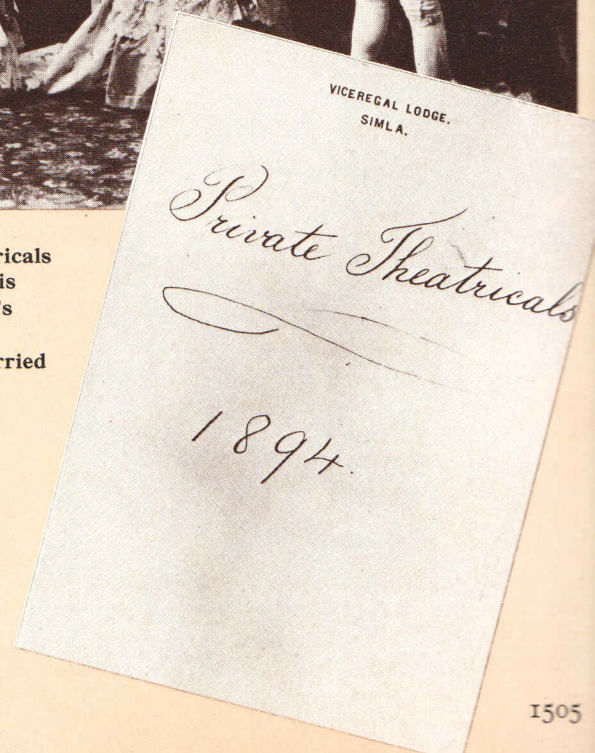 VICEREGAL LODGE.
SIMLA.
Private Theatricals
1894.
ricals
is
's
rried
1505